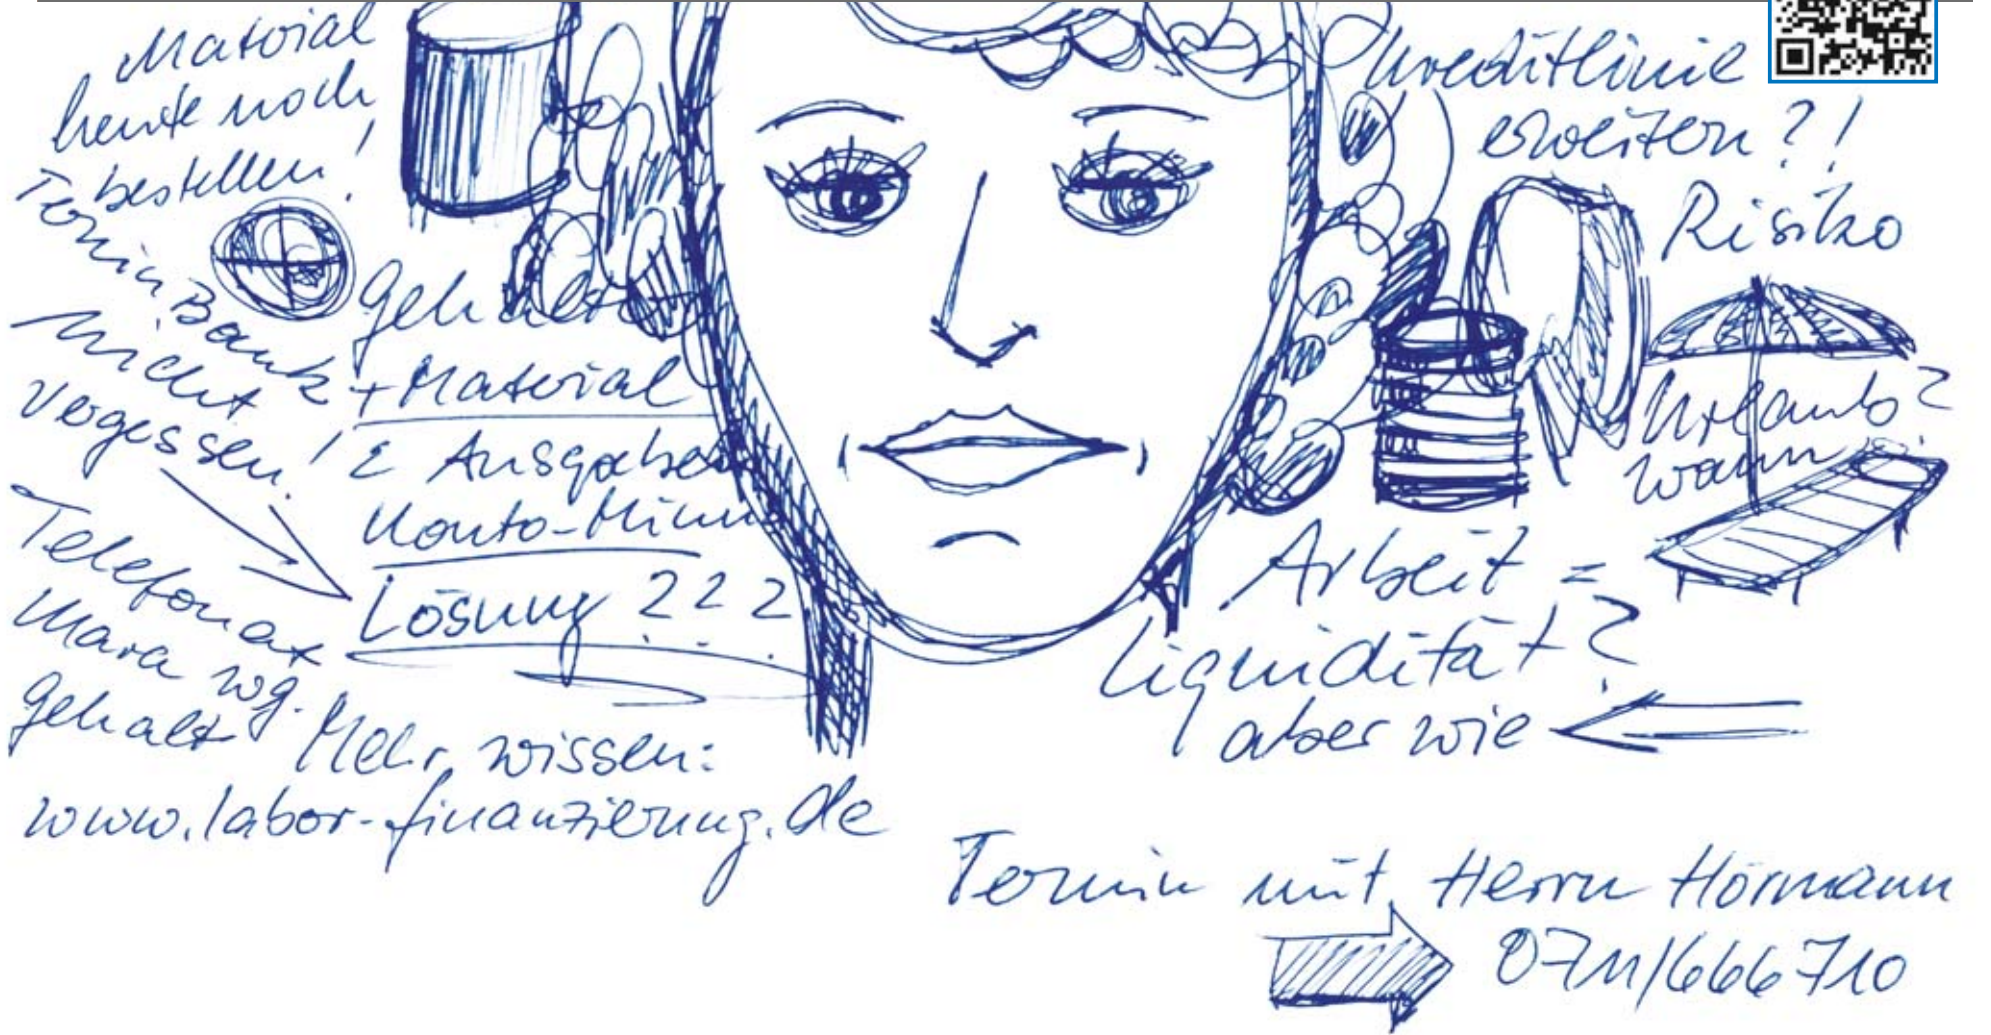 Material
heute noch
bestellen!
Termin Bank
nicht
vergessen!
Gehälter
+ Material
Σ Ausgaben
Konto-Minus
Lösung ???
Telefonat
Mara wg.
Gehalt
Mehr wissen:
www.labor-finanzierung.de
Kreditlinie
erweitern?!
Risiko
Urlaub?
wann
Arbeit =
Liquidität?
aber wie
Termin mit Herrn Hörmann
0711/666710